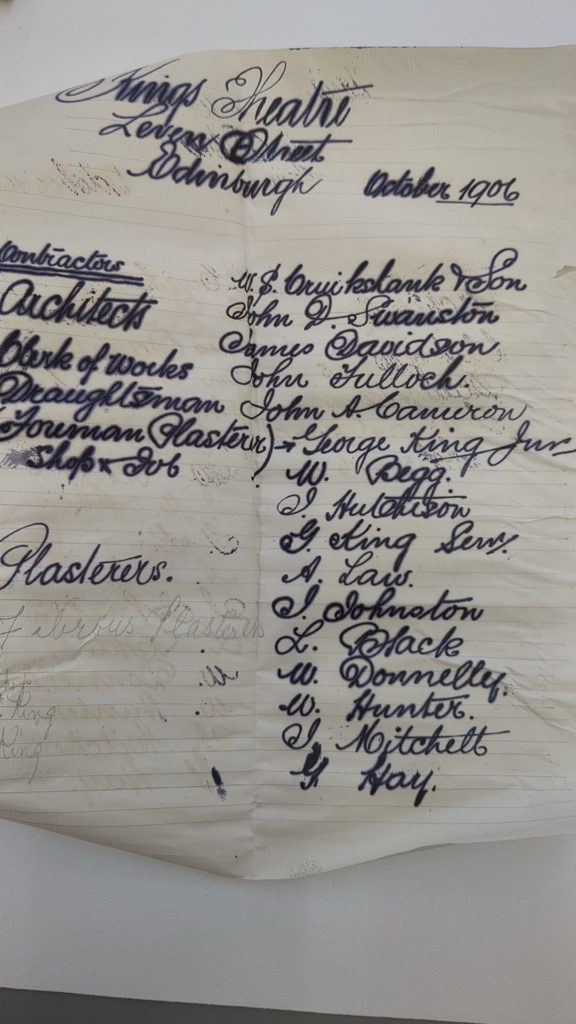 Kings Theatre
Leven Street
Edinburgh
October 1906
Contractors W. S. Cruikshank & Son
Architects John D. Swanston
James Davidson
Clerk of Works John Tulloch.
Draughtsman John A. Cameron
(Foreman Plasterer) George King Junr
Shop & Job W. Begg.
J. Hutchison
G. King Senr.
Plasterers. A. Law.
J. Johnston
Plasterers L. Black
W. Donnelly.
King W. Hunter.
King J. Mitchell
G. Hay.